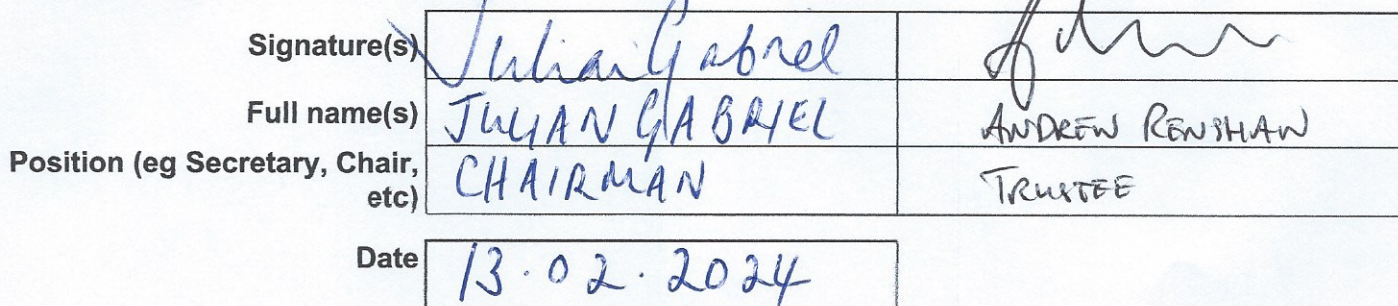 Signature(s) Julian Gabriel
Full name(s) JULIAN GABRIEL ANDREW RENSHAW
Position (eg Secretary, Chair, etc) CHAIRMAN TRUSTEE
Date 13.02.2024